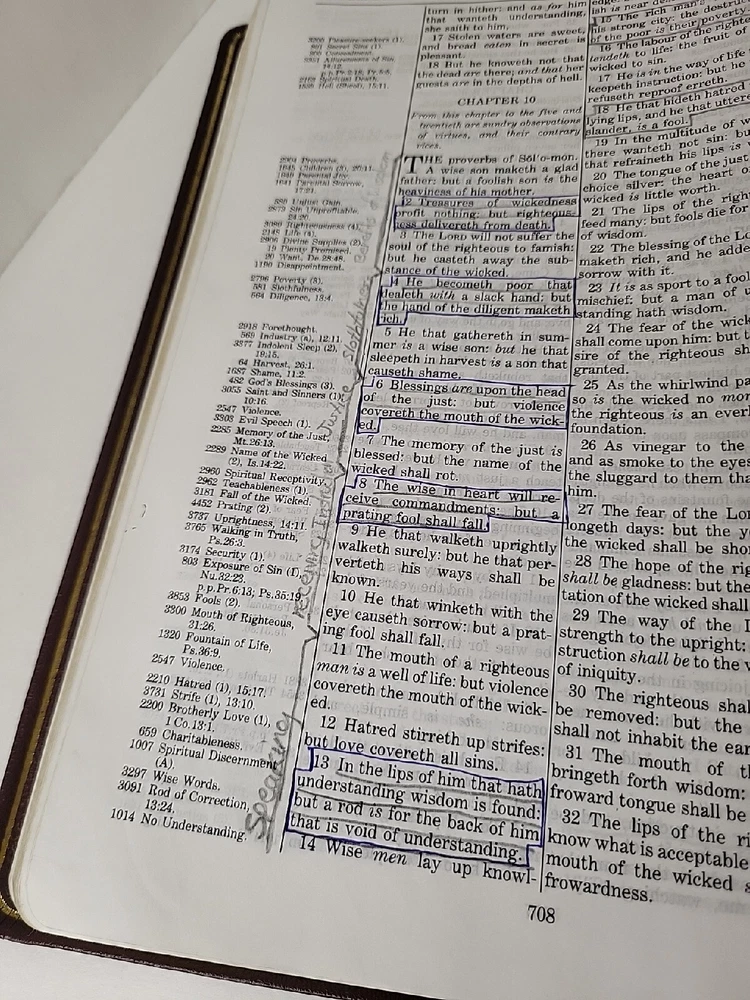 3266 Pleasure-seekers (1).
891 Secret Sins (1).
p.p. Pr.2:18; Pr.5:5.
2159 Spiritual Death.
1528 Hell (Sheol), 15:11.
2964 Proverbs.
1645 Children (2), 20:11.
1641 Parental Sorrow,
17:21.
588 Unjust Gain.
2873 Sin Unprofitable,
24:20.
3086 Righteousness (4).
2148 Life (4).
2906 Divine Supplies (2).
19 Plenty Promised.
20 Want, De.28:48.
1190 Disappointment.
2796 Poverty (8).
581 Slothfulness.
564 Diligence, 13:4.
2918 Forethought.
569 Industry (a), 12:11.
3377 Indolent Sleep (2),
19:15.
64 Harvest, 26:1.
1687 Shame, 11:2.
482 God's Blessings (3).
3055 Saint and Sinners (1),
10:16.
2547 Violence.
3303 Evil Speech (1).
2285 Memory of the Just,
Mt.26:13.
2289 Name of the Wicked
(2), Is.14:22.
2960 Spiritual Receptivity.
2962 Teachableness (1).
3181 Fall of the Wicked.
4452 Prating (2).
3737 Uprightness, 14:11.
3765 Walking in Truth,
Ps.26:3.
3174 Security (1).
803 Exposure of Sin (1),
Nu.32:23.
p.p.Pr.6:13; Ps.35:19.
3853 Fools (2).
3300 Mouth of Righteous,
31:26.
1320 Fountain of Life,
Ps.36:9.
2547 Violence.
2210 Hatred (1), 15:17.
3731 Strife (1), 13:10.
2200 Brotherly Love (1),
1 Co.13:1.
659 Charitableness.
1007 Spiritual Discernment
(A).
3297 Wise Words.
3091 Rod of Correction,
13:24.
1014 No Understanding.
Slothfulness
Justice
receiving
Speaking
turn in hither: and as for him
that wanteth understanding,
she saith to him,
17 Stolen waters are sweet,
and bread eaten in secret is
pleasant.
18 But he knoweth not that
the dead are there; and that her
guests are in the depths of hell.
CHAPTER 10
From this chapter to the five and
twentieth are sundry observations
of virtues, and their contrary
vices.
THE proverbs of Sŏl'o-mon.
A wise son maketh a glad
father: but a foolish son is the
heaviness of his mother.
2 Treasures of wickedness
profit nothing: but righteous-
ness delivereth from death.
3 The LORD will not suffer the
soul of the righteous to famish:
but he casteth away the sub-
stance of the wicked.
4 He becometh poor that
dealeth with a slack hand: but
the hand of the diligent maketh
rich.
5 He that gathereth in sum-
mer is a wise son: but he that
sleepeth in harvest is a son that
causeth shame.
6 Blessings are upon the head
of the just: but violence
covereth the mouth of the wick-
ed.
7 The memory of the just is
blessed: but the name of the
wicked shall rot.
8 The wise in heart will re-
ceive commandments: but a
prating fool shall fall.
9 He that walketh uprightly
walketh surely: but he that per-
verteth his ways shall be
known.
10 He that winketh with the
eye causeth sorrow: but a prat-
ing fool shall fall.
11 The mouth of a righteous
man is a well of life: but violence
covereth the mouth of the wick-
ed.
12 Hatred stirreth up strifes:
but love covereth all sins.
13 In the lips of him that hath
understanding wisdom is found:
but a rod is for the back of him
that is void of understanding.
14 Wise men lay up knowl-
15 The rich man's
his strong city: the destruc
of the poor is their poverty.
16 The labour of the righte
tendeth to life: the fruit of
wicked to sin.
17 He is in the way of life
keepeth instruction: but he
refuseth reproof erreth.
18 He that hideth hatred
lying lips, and he that uttere
slander, is a fool.
19 In the multitude of w
there wanteth not sin: bu
that refraineth his lips is
20 The tongue of the just
choice silver: the heart o
wicked is little worth.
21 The lips of the righ
feed many: but fools die for
of wisdom.
22 The blessing of the Lo
maketh rich, and he adde
sorrow with it.
23 It is as sport to a fool
mischief: but a man of u
standing hath wisdom.
24 The fear of the wick
shall come upon him: but t
sire of the righteous sh
granted.
25 As the whirlwind pa
so is the wicked no mor
the righteous is an everl
foundation.
26 As vinegar to the
and as smoke to the eye
the sluggard to them tha
him.
27 The fear of the Lor
longeth days: but the y
the wicked shall be sho
28 The hope of the rig
shall be gladness: but the
tation of the wicked shall
29 The way of the L
strength to the upright:
struction shall be to the w
of iniquity.
30 The righteous shal
be removed: but the
shall not inhabit the ear
31 The mouth of th
bringeth forth wisdom:
froward tongue shall be
32 The lips of the ri
know what is acceptable
mouth of the wicked s
frowardness.
708